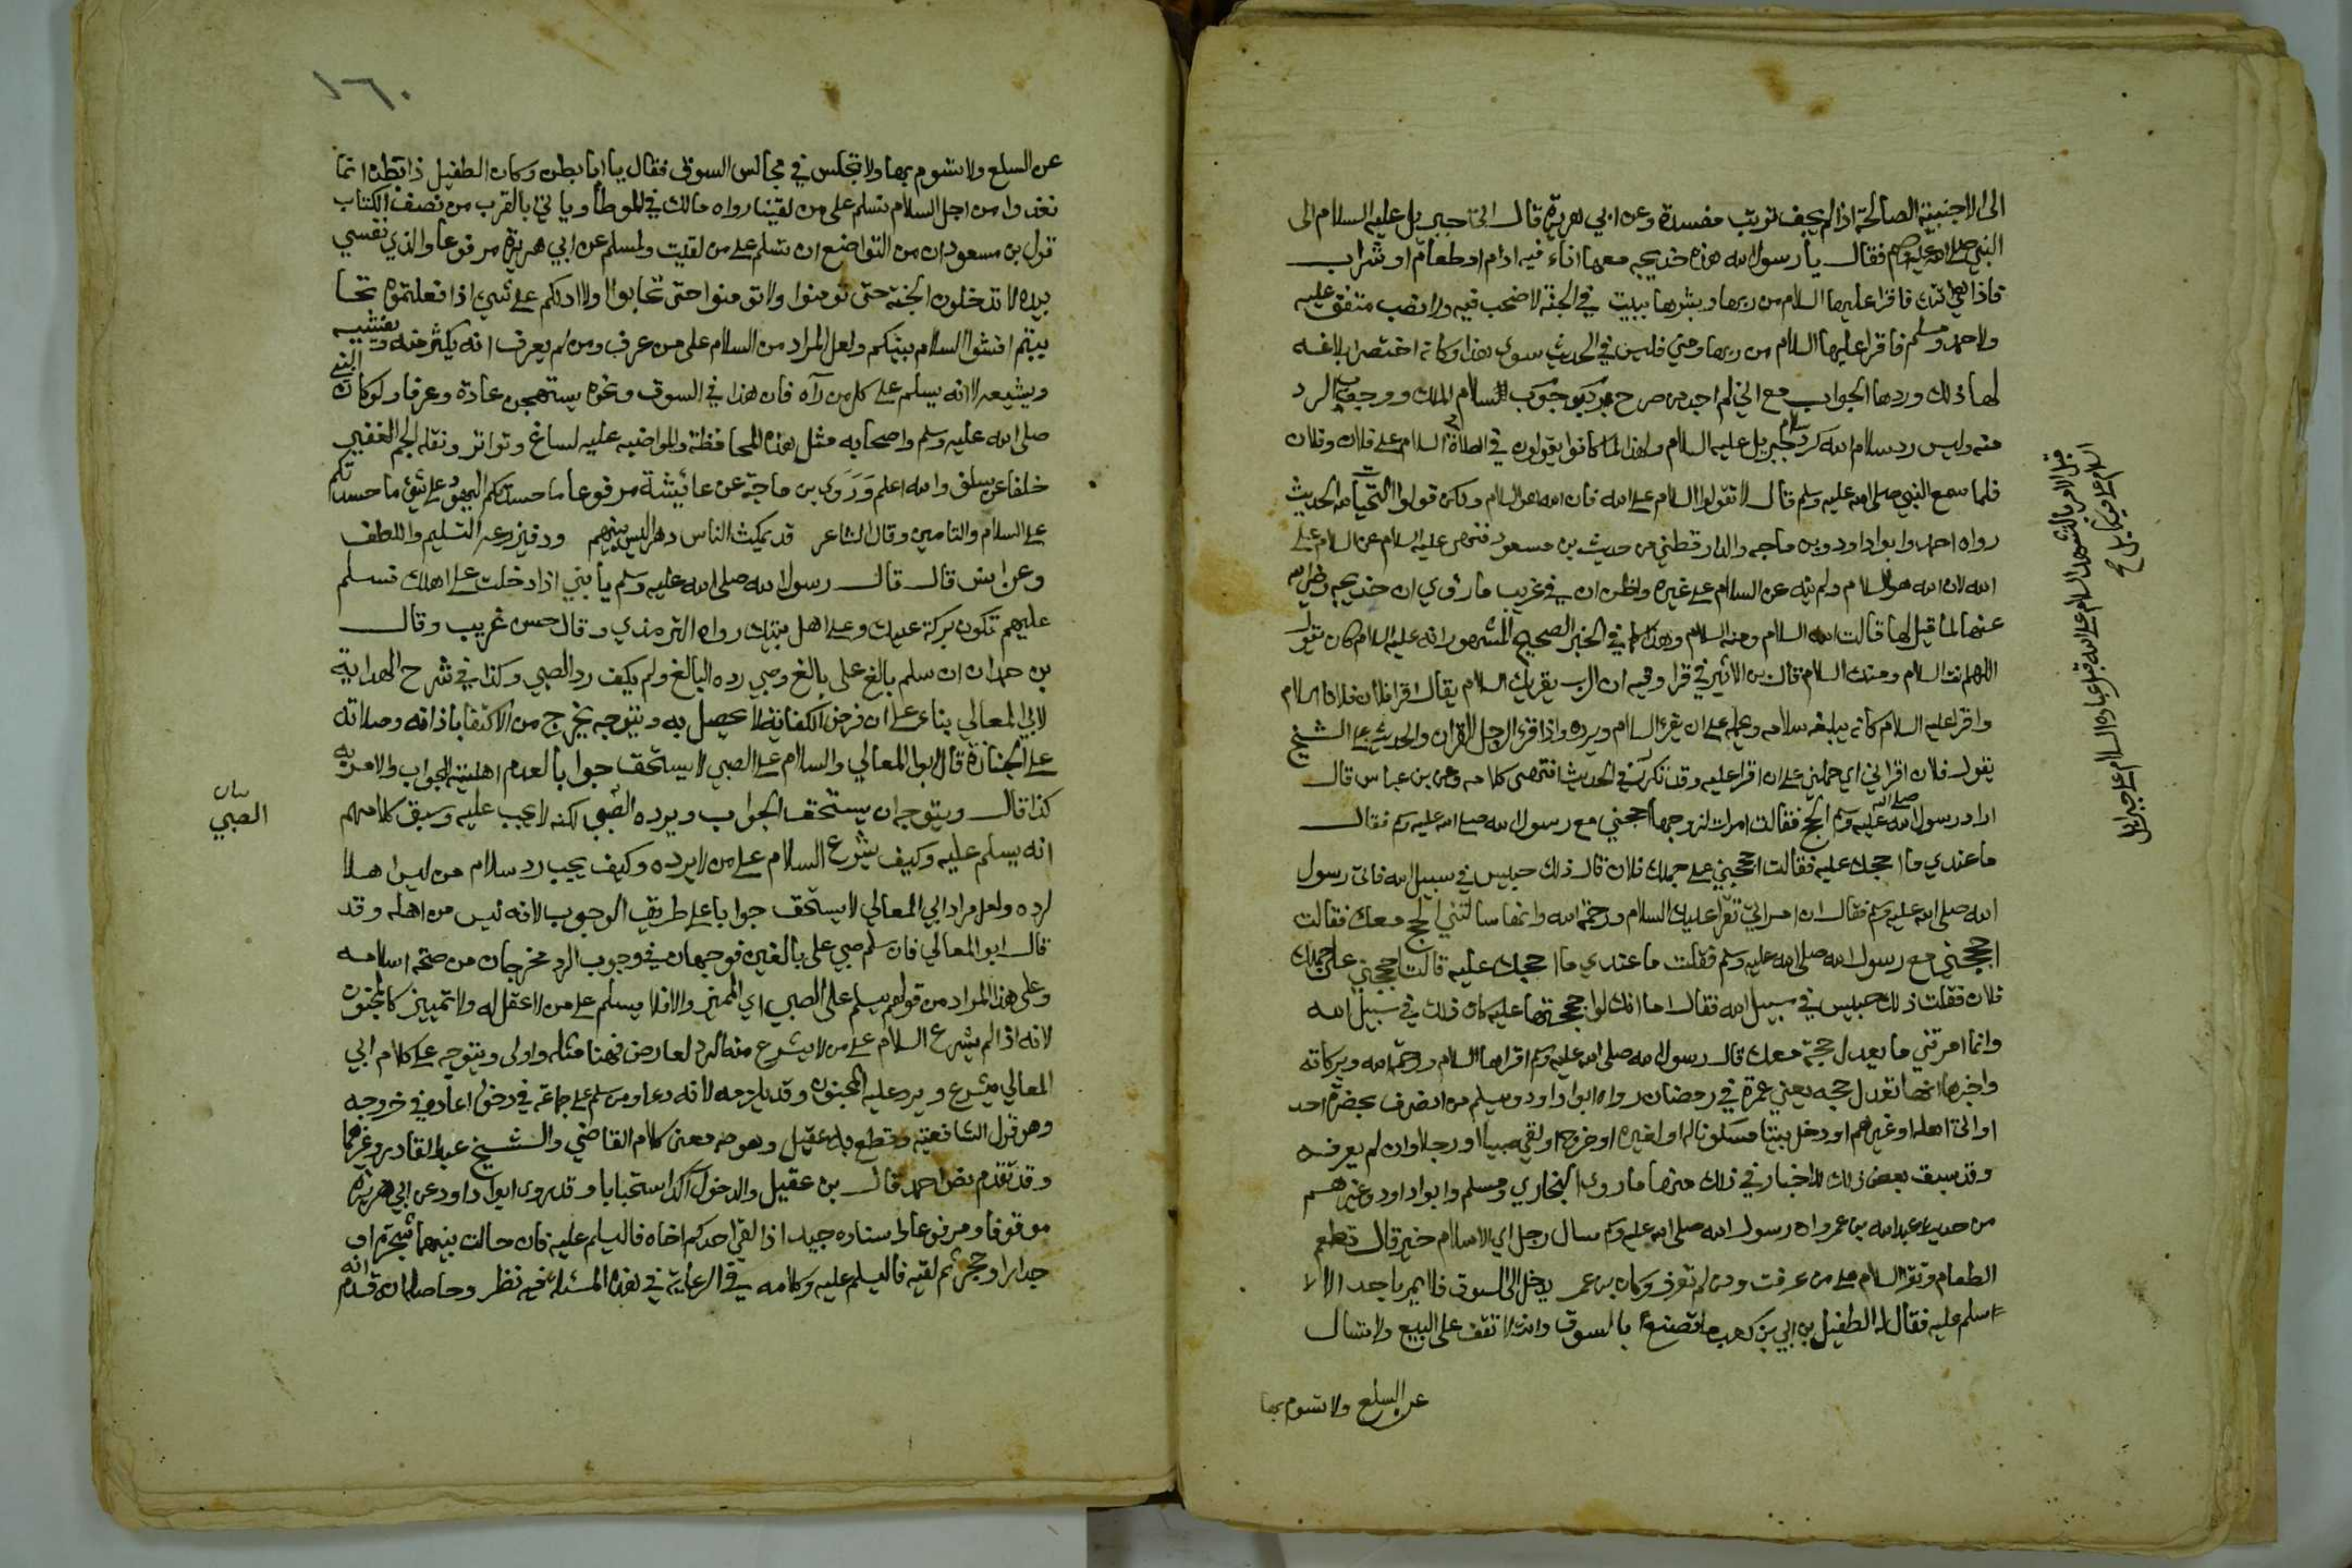 الى الاجنبية الصالحة اذا لم يخف ثوبت مفسدة وعن ابي هريرة قال اتى جبريل عليه السلام الى
النبي صلى الله عليه وسلم فقال يا رسول الله هذه خديجه معها اناء فيه ادام او طعام او شراب
فاذا هي اتتك فاقرا عليها السلام من ربها وبشرها ببيت في الجنة لا صخب فيه ولا نصب متفق عليه
ولاحمد ومسلم فاقرا عليها السلام من ربها ومني فليس في الحديث سوى هذا وكانه اختصر ابلاغه
لها ذلك وردها الجواب مع اني لم اجد من صرح السلام الملك ووجوب الرد
منه وليس رد سلام الله كرد سلام جبريل عليه السلام ولهذا لما كانوا يقولون في الصلاة السلام على فلان وفلان
فلما سمع النبي صلى الله عليه وسلم قال لا تقولوا السلام على الله فان الله هو السلام ولكن قولوا التحيات لله الحديث
رواه احمد وابو داود وبن ماجه والدارقطني من حديث بن مسعود فنهى عليه السلام عن السلام على
الله لان الله هو السلام ولم ينه عن السلام على غيره واظن ان في غريب ما روي ان خديجه رضي الله
عنها لما قيل لها قالت الله السلام ومنه السلام وهذا كما في الخبر الصحيح المشهور انه عليه السلام كان يقول
اللهم انت السلام ومنك السلام قال بن الاثير في قرا وفيه ان الرب يقريك السلام يقال اقرا فلان فلانا السلام
واقرا عليه السلام كانه يبلغه سلامه ويحمله على ان يقرء السلام ويرده واذا قرء الرجل القران والحديث على الشيخ
يقول فلان اقراني اي حملني على ان اقرا عليه وقد تكرر في الحديث انتهى كلامه وعن بن عباس قال
اراد رسول الله صلى الله عليه وسلم الحج فقالت امراة لزوجها احججني مع رسول الله صلى الله عليه وسلم فقال
ما عندي ما احجك عليه فقالت احججني على جملك فلان قال ذلك حبيس في سبيل الله فاتى رسول
الله صلى الله عليه وسلم فقال ان امراتي تقرا عليك السلام ورحمة الله وانها سالتني الحج معك فقالت
احججني مع رسول الله صلى الله عليه وسلم فقلت ما عندي ما احجك عليه قالت احججني على جملك
فلان فقلت ذلك حبيس في سبيل الله فقال اما انك لو احججتها عليه كان ذلك في سبيل الله
وانما امرتني ما يعدل حجة معك قال رسول الله صلى الله عليه وسلم اقراها السلام ورحمة الله وبركاته
واخبرها انها تعدل حجه يعني عمرة في رمضان رواه ابو داود ويسلم من انصرف بحضرة احد
او اتى اهله او غيرهم او دخل بيتا مسكونا له او لغيره او خرج او لقي صبيا او رجلا وان لم يعرفه
وقد سبق بعض ذلك للاخبار في ذلك منها ما روى البخاري ومسلم وابو داود وغيرهم
من حديث عبد الله بن عمرو ان رسول الله صلى الله عليه وسلم سال رجل اي الاسلام خير قال تطعم
الطعام وتقرا السلام على من عرفت ومن لم تعرف وكان بن عمر يدخل الى السوق فلا يمر باحد الا
سلم عليه فقال له الطفيل بن ابي بن كعب ما تصنع بالسوق وانت لا تقف على البيع ولا تسال
عن السلع ولا تسوم بها
قبل الامر بالتشهد السلام على الله قبل عباده السلام على جبرايل
السلام على ميكايل صح
١٦٠
عن السلع ولا تسوم بها ولا تجلس في مجالس السوق فقال يا ابا بطن وكان الطفيل ذا بطن انما
نغدوا من اجل السلام نسلم على من لقينا رواه مالك في الموطا وياتي بالقرب من نصف الكتاب
قول بن مسعود ان من التواضع ان تسلم على من لقيت ولمسلم عن ابي هريرة مرفوعا والذي نفسي
بيده لا تدخلون الجنة حتى تومنوا ولا تومنوا حتى تحابوا اولا ادلكم على شيئ اذا فعلتموه تحا
بيتم افشوا السلام بينكم ولعل المراد من السلام على من عرف ومن لم يعرف انه يكثر منه ويفشيه
ويشيعه لا انه يسلم على كل من رآه فان هذا في السوق ونحوه يستهجن عادة وعرفا ولو كان النبي
صلى الله عليه وسلم واصحابه مثل هذه المحافظة والمواضبه عليه لساغ وتواتر ونقله الجم الغفير
خلفا عن سلف والله اعلم وروى بن ماجة عن عائيشة مرفوعا ما حسدتكم اليهود على شيئ ما حسدتكم
على السلام والتامين وقال الشاعر قد يمكث الناس دهرا ليس بينهم ود فيزرعه التسليم واللطف
وعن انس قال قال رسول الله صلى الله عليه وسلم يا بني اذا دخلت على اهلك فسلم
عليهم تكون بركة عليك وعلى اهل بيتك رواه الترمذي وقال حسن غريب وقال
بن حمدان ان سلم بالغ على بالغ وصبي رده البالغ ولم يكف رد الصبي وكذا في شرح الهداية
لابي المعالي بناء على ان فرض الكفاية لا يحصل به ويتوجه يخرج من الاكتفا باذانه وصلاته
على الجنازة قال ابو المعالي والسلام على الصبي لا يستحق جوابا لعدم اهليته للجواب والامر به
كذا قال ويتوجه ان يستحق الجواب ويرده الصبي لكنه لا يجب عليه وسبق كلامهم
انه يسلم عليه وكيف يشرع السلام على من لا يرده وكيف يجب رد سلام من ليس اهلا
لرده ولعل مراد ابي المعالي لا يستحق جوابا على طريق الوجوب لانه ليس من اهله وقد
قال ابو المعالي فان سلم صبي على بالغين فوجهان في وجوب الرد مخرجان من صحة اسلامه
وعلى هذا المراد من قولهم يسلم على الصبي اي المميز والا فلا يسلم على من لا عقل له ولا تمييز كالمجنون
لانه اذا لم يشرع السلام على من لا يشرع منه الرد لعارض فهنا مثله واولى ويتوجه على كلام ابي
المعالي يشرع ويرد عليه المجنون وقد يلزمه لانه دعا ومن سلم على جماعة في دخوله اعاده في خروجه
وهو قول الشافعية وقطع به بن عقيل وهو معنى كلام القاضي والشيخ عبد القادر وغيرهما
وقد تقدم نص احمد قال بن عقيل والدخول آكد استحبابا وقد روى ابو داود عن ابي هريرة
موقوفا ومرفوعا واسناده جيد اذا لقي احدكم اخاه فاليسلم عليه فان حالت بينهما شجرة او
جدار او حجر ثم لقيه فاليسلم عليه وكلامه في الرعاية في هذه المسئلة فيه نظر وحاصله انه قدم
الصبي